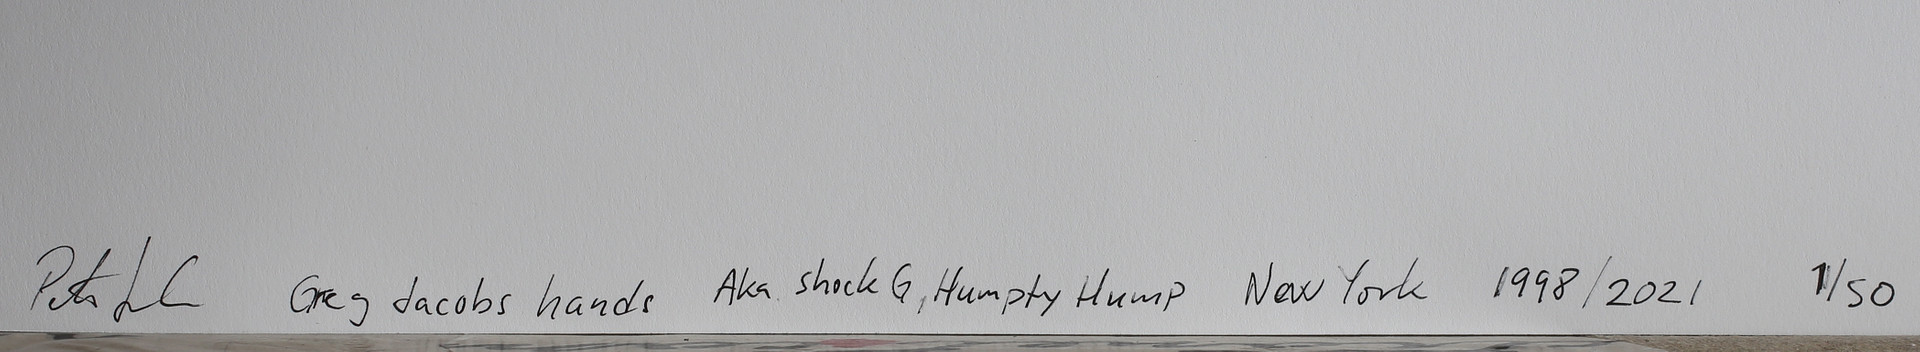 Greg Jacobs hands Aka shock G, Humpty Hump New York 1998/2021 1/50